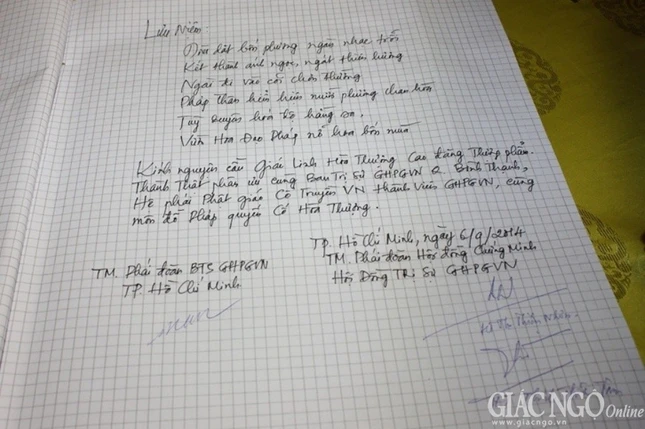 Lưu Niệm
Đóa bốn phương ngàn nhạc trổi
Kết thành anh ngọc, ngát thiên hương
Ngài đi vào cõi chơn thường
Pháp thân hiển hiện mười phương chan hòa
Tùy duyên hóa độ hằng sa.
Vườn Hoa Đạo Pháp nở hoa bốn mùa
Kính nguyện cầu Giác Linh Hòa Thượng Cao đăng Thượng phẩm.
Thành Thất phân ưu cùng Ban Trị Sự GHPGVN Q Bình Thạnh,
Hệ phái Phật giáo Cổ Truyền VN thành viên GHPGVN, cùng
môn đồ Pháp quyến Cố Hòa Thượng.
TP. Hồ Chí Minh, ngày 6/9/2014
TM. Phái đoàn BTS GHPGVN
TP. Hồ Chí Minh
TM. Phái đoàn Hội đồng Chứng Minh
Hội Đồng Trị Sự GHPGVN
GIÁC NGỘ Online
www.giacngo.vn